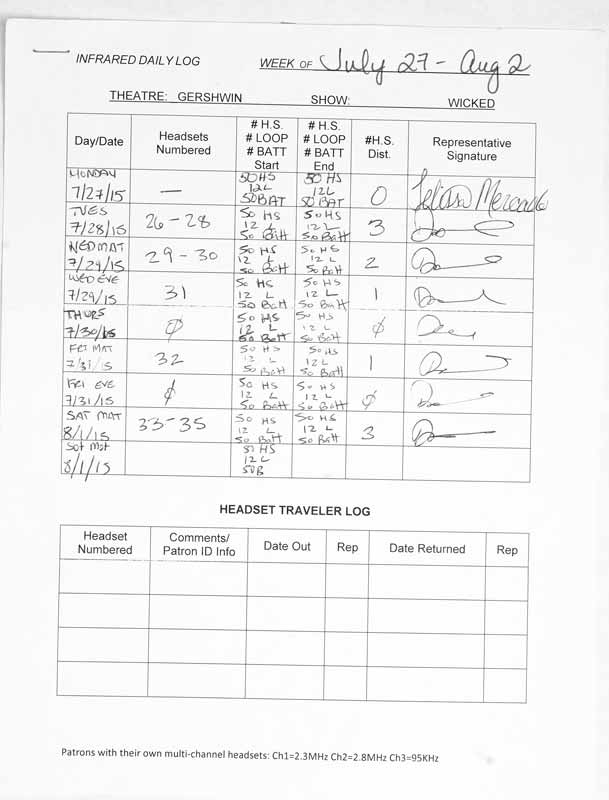 INFRARED DAILY LOG WEEK OF July 27 - Aug 2
THEATRE: GERSHWIN SHOW: WICKED
Day/Date Headsets Numbered # H.S. # LOOP # BATT Start # H.S. # LOOP # BATT End #H.S. Dist. Representative Signature
MONDAY 7/27/15 — 50 HS 12 L 50 BAT 50 HS 12 L 50 BAT 0
TUES 7/28/15 26-28 50 HS 12 L 50 Batt 50 HS 12 L 50 Batt 3
WED MAT 7/29/15 29-30 50 HS 12 L 50 Batt 50 HS 12 L 50 Batt 2
WED EVE 7/29/15 31 50 HS 12 L 50 Batt 50 HS 12 L 50 Batt 1
THURS 7/30/15 Ø 50 HS 12 L 50 Batt 50 HS 12 L 50 Batt Ø
FRI MAT 7/31/15 32 50 HS 12 L 50 Batt 50 HS 12 L 50 Batt 1
FRI EVE 7/31/15 Ø 50 HS 12 L 50 Batt 50 HS 12 L 50 Batt Ø
SAT MAT 8/1/15 33-35 50 HS 12 L 50 Batt 50 HS 12 L 50 Batt 3
Sat Mat 8/1/15 50 HS 12 L 50B
HEADSET TRAVELER LOG
Headset Numbered Comments/ Patron ID Info Date Out Rep Date Returned Rep
Patrons with their own multi-channel headsets: Ch1=2.3MHz Ch2=2.8MHz Ch3=95KHz